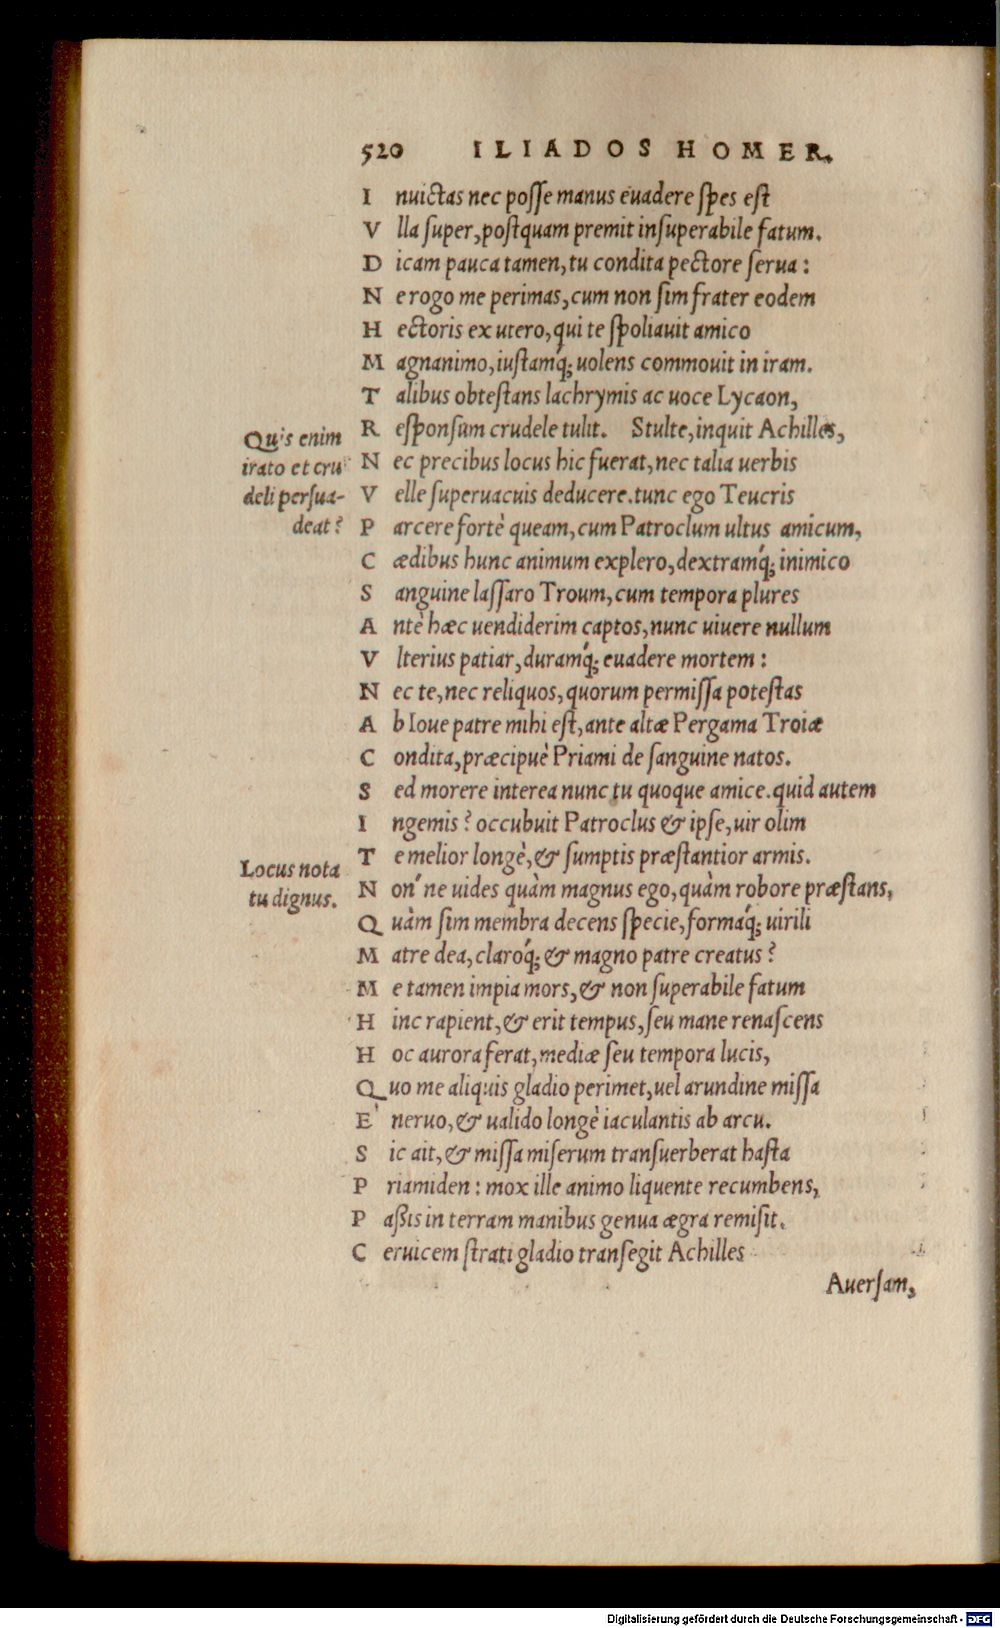 520 ILIADOS HOMER.
I nuictas nec posse manus euadere spes est
V lla super, postquam premit insuperabile fatum.
D icam pauca tamen, tu condita pectore serua:
N e rogo me perimas, cum non sim frater eodem
H ectoris ex utero, qui te spoliauit amico
M agnanimo, iustamq́; uolens commouit in iram.
T alibus obtestans lachrymis ac uoce Lycaon,
R esponsum crudele tulit. Stulte, inquit Achilles,
N ec precibus locus hic fuerat, nec talia uerbis
V elle superuacuis deducere. tunc ego Teucris
P arcere fortè queam, cum Patroclum ultus amicum,
C ædibus hunc animum explero, dextramq́; inimico
S anguine lassaro Troum, cum tempora plures
A ntè hæc uendiderim captos, nunc uiuere nullum
V lterius patiar, duramq́; euadere mortem:
N ec te, nec reliquos, quorum permissa potestas
A b Ioue patre mihi est, ante altæ Pergama Troiæ
C ondita, præcipuè Priami de sanguine natos.
S ed morere interea nunc tu quoque amice. quid autem
I ngemis? occubuit Patroclus & ipse, uir olim
T e melior longè, & sumptis præstantior armis.
N on' ne uides quàm magnus ego, quàm robore præstans,
Q uàm sim membra decens specie, formaq́; uirili
M atre dea, claroq́; & magno patre creatus?
M e tamen impia mors, & non superabile fatum
H inc rapient, & erit tempus, seu mane renascens
H oc aurora ferat, mediæ seu tempora lucis,
Q uo me aliquis gladio perimet, uel arundine missa
E neruo, & ualido longè iaculantis ab arcu.
S ic ait, & missa miserum transuerberat hasta
P riamiden: mox ille animo liquente recumbens,
P aßis in terram manibus genua ægra remisit.
C eruicem strati gladio transegit Achilles
Auersam,
Quis enim
irato et cru
deli persua-
deat?
Locus nota
tu dignus.
Digitalisierung gefördert durch die Deutsche Forschungsgemeinschaft - DFG